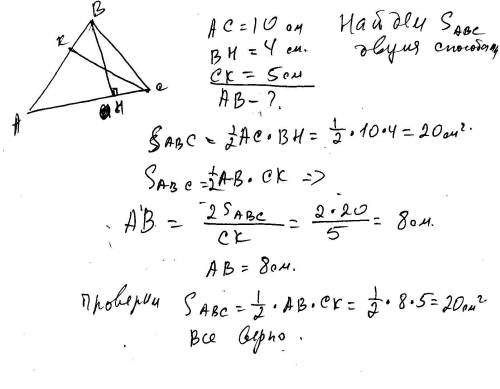 B
K
C
A
H
AC = 10 см
BH = 4 см.
CK = 5 см
AB - ?
Найдем S_ABC
двумя способами
S_ABC = 1/2 AC · BH = 1/2 · 10 · 4 = 20 см²
S_ABC = 1/2 AB · CK =>
AB = 2S_ABC/CK = 2·20/5 = 8 см.
AB = 8 см.
Проверки S_ABC = 1/2 · AB · CK = 1/2 · 8 · 5 = 20 см²
Все верно.